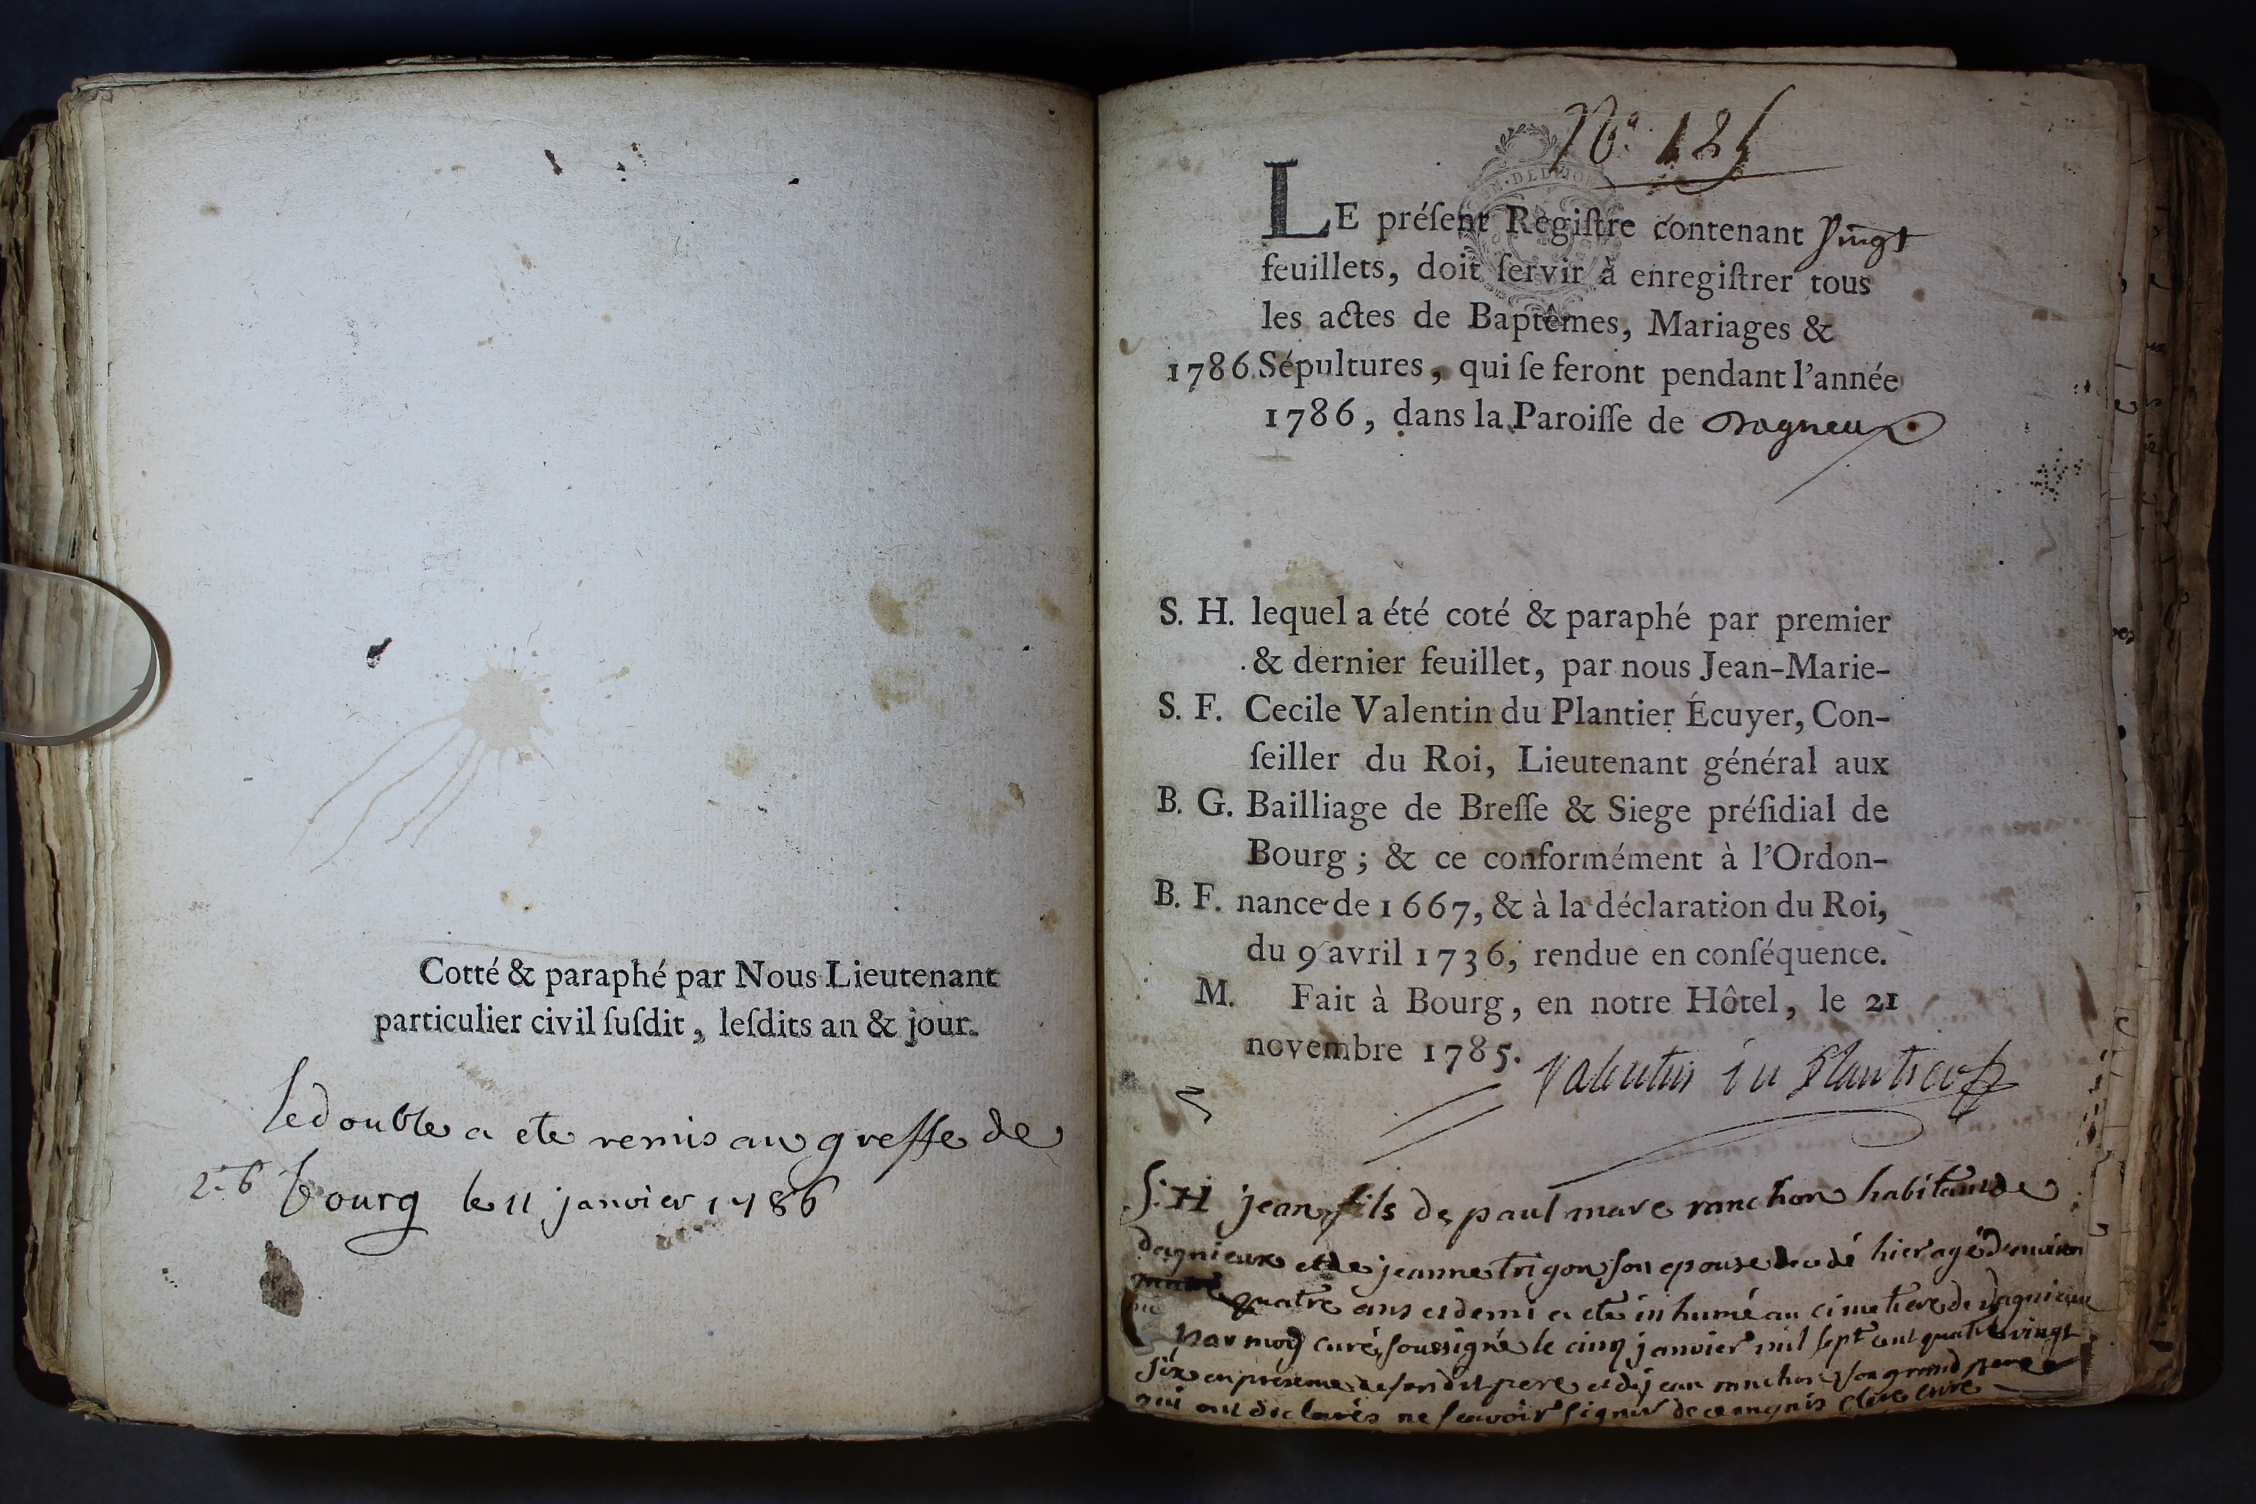 Cotté & paraphé par Nous Lieutenant
particulier civil ſuſdit, leſdits an & jour.
le double a ete remis au greffe de
bourg le 11 janvier 1786
Nº. 125
LE préſent Regiſtre contenant Vingt
feuillets, doit ſervir à enregiſtrer tous
les actes de Baptêmes, Mariages &
1786. Sépultures, qui ſe feront pendant l'année
1786, dans la Paroiſſe de Dagneux
S. H. lequel a été coté & paraphé par premier
& dernier feuillet, par nous Jean-Marie-
S. F. Cecile Valentin du Plantier Écuyer, Con-
ſeiller du Roi, Lieutenant général aux
B. G. Bailliage de Breſſe & Siege préſidial de
Bourg ; & ce conformément à l'Ordon-
B. F. nance de 1667, & à la déclaration du Roi,
du 9 avril 1736, rendue en conſéquence.
M. Fait à Bourg, en notre Hôtel, le 21
novembre 1785. Valentin du Plantier
S. H jean fils de paul marc ranchon habitant de
dagnieux et de jeanne trigon son epouse decedé hier agé d'environ
quatre ans et demi a ete inhumé au cimetiere de dagnieux
par moy curé soussigné le cinq janvier mil sept cent quatre vingt
six en presence de son dit pere et de jean ranchon son grand pere
qui ont declarés ne scavoir signer de ce enquis curé